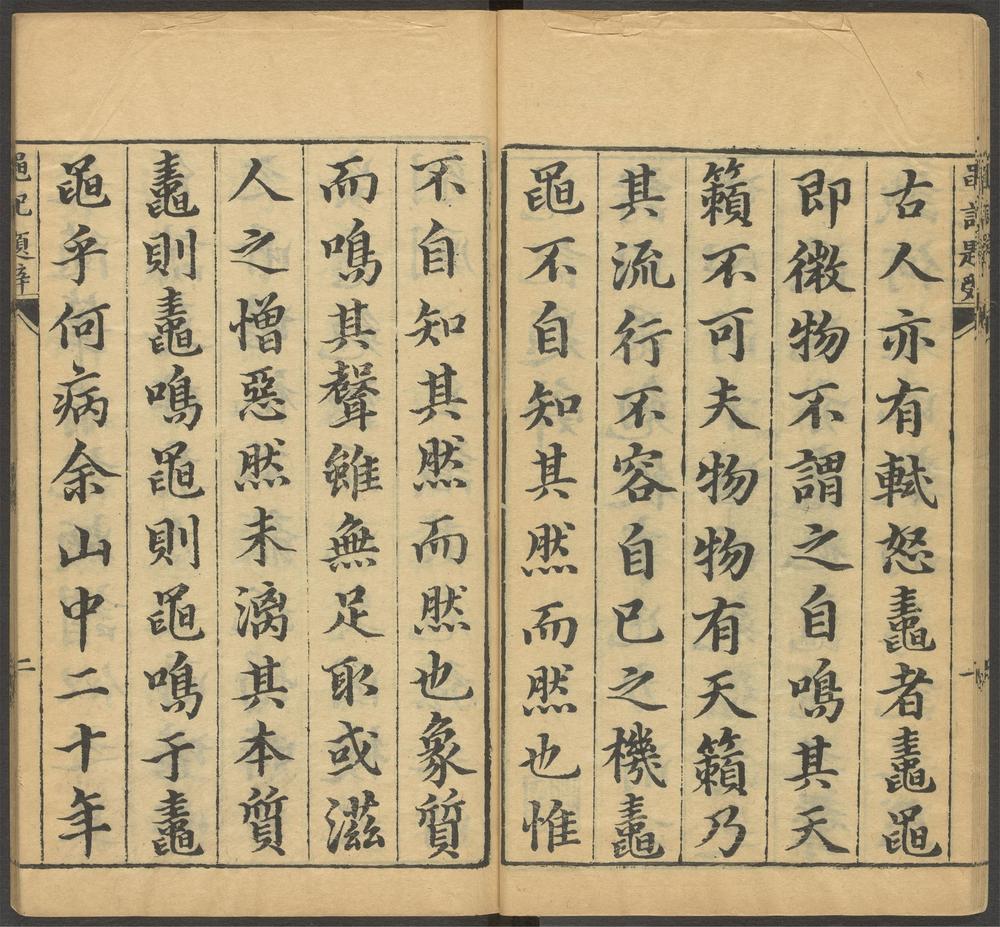 黽記題辭
一
古人亦有軾怒鼃者鼃黽
即微物不謂之自鳴其天
籟不可夫物物有天籟乃
其流行不容自已之機鼃
黽不自知其然而然也惟
不自知其然而然也象質
而鳴其聲雖無足取或滋
人之憎惡然未漓其本質
鼃則鼃鳴黽則黽鳴于鼃
黽乎何病余山中二十年
黽記題辭
二